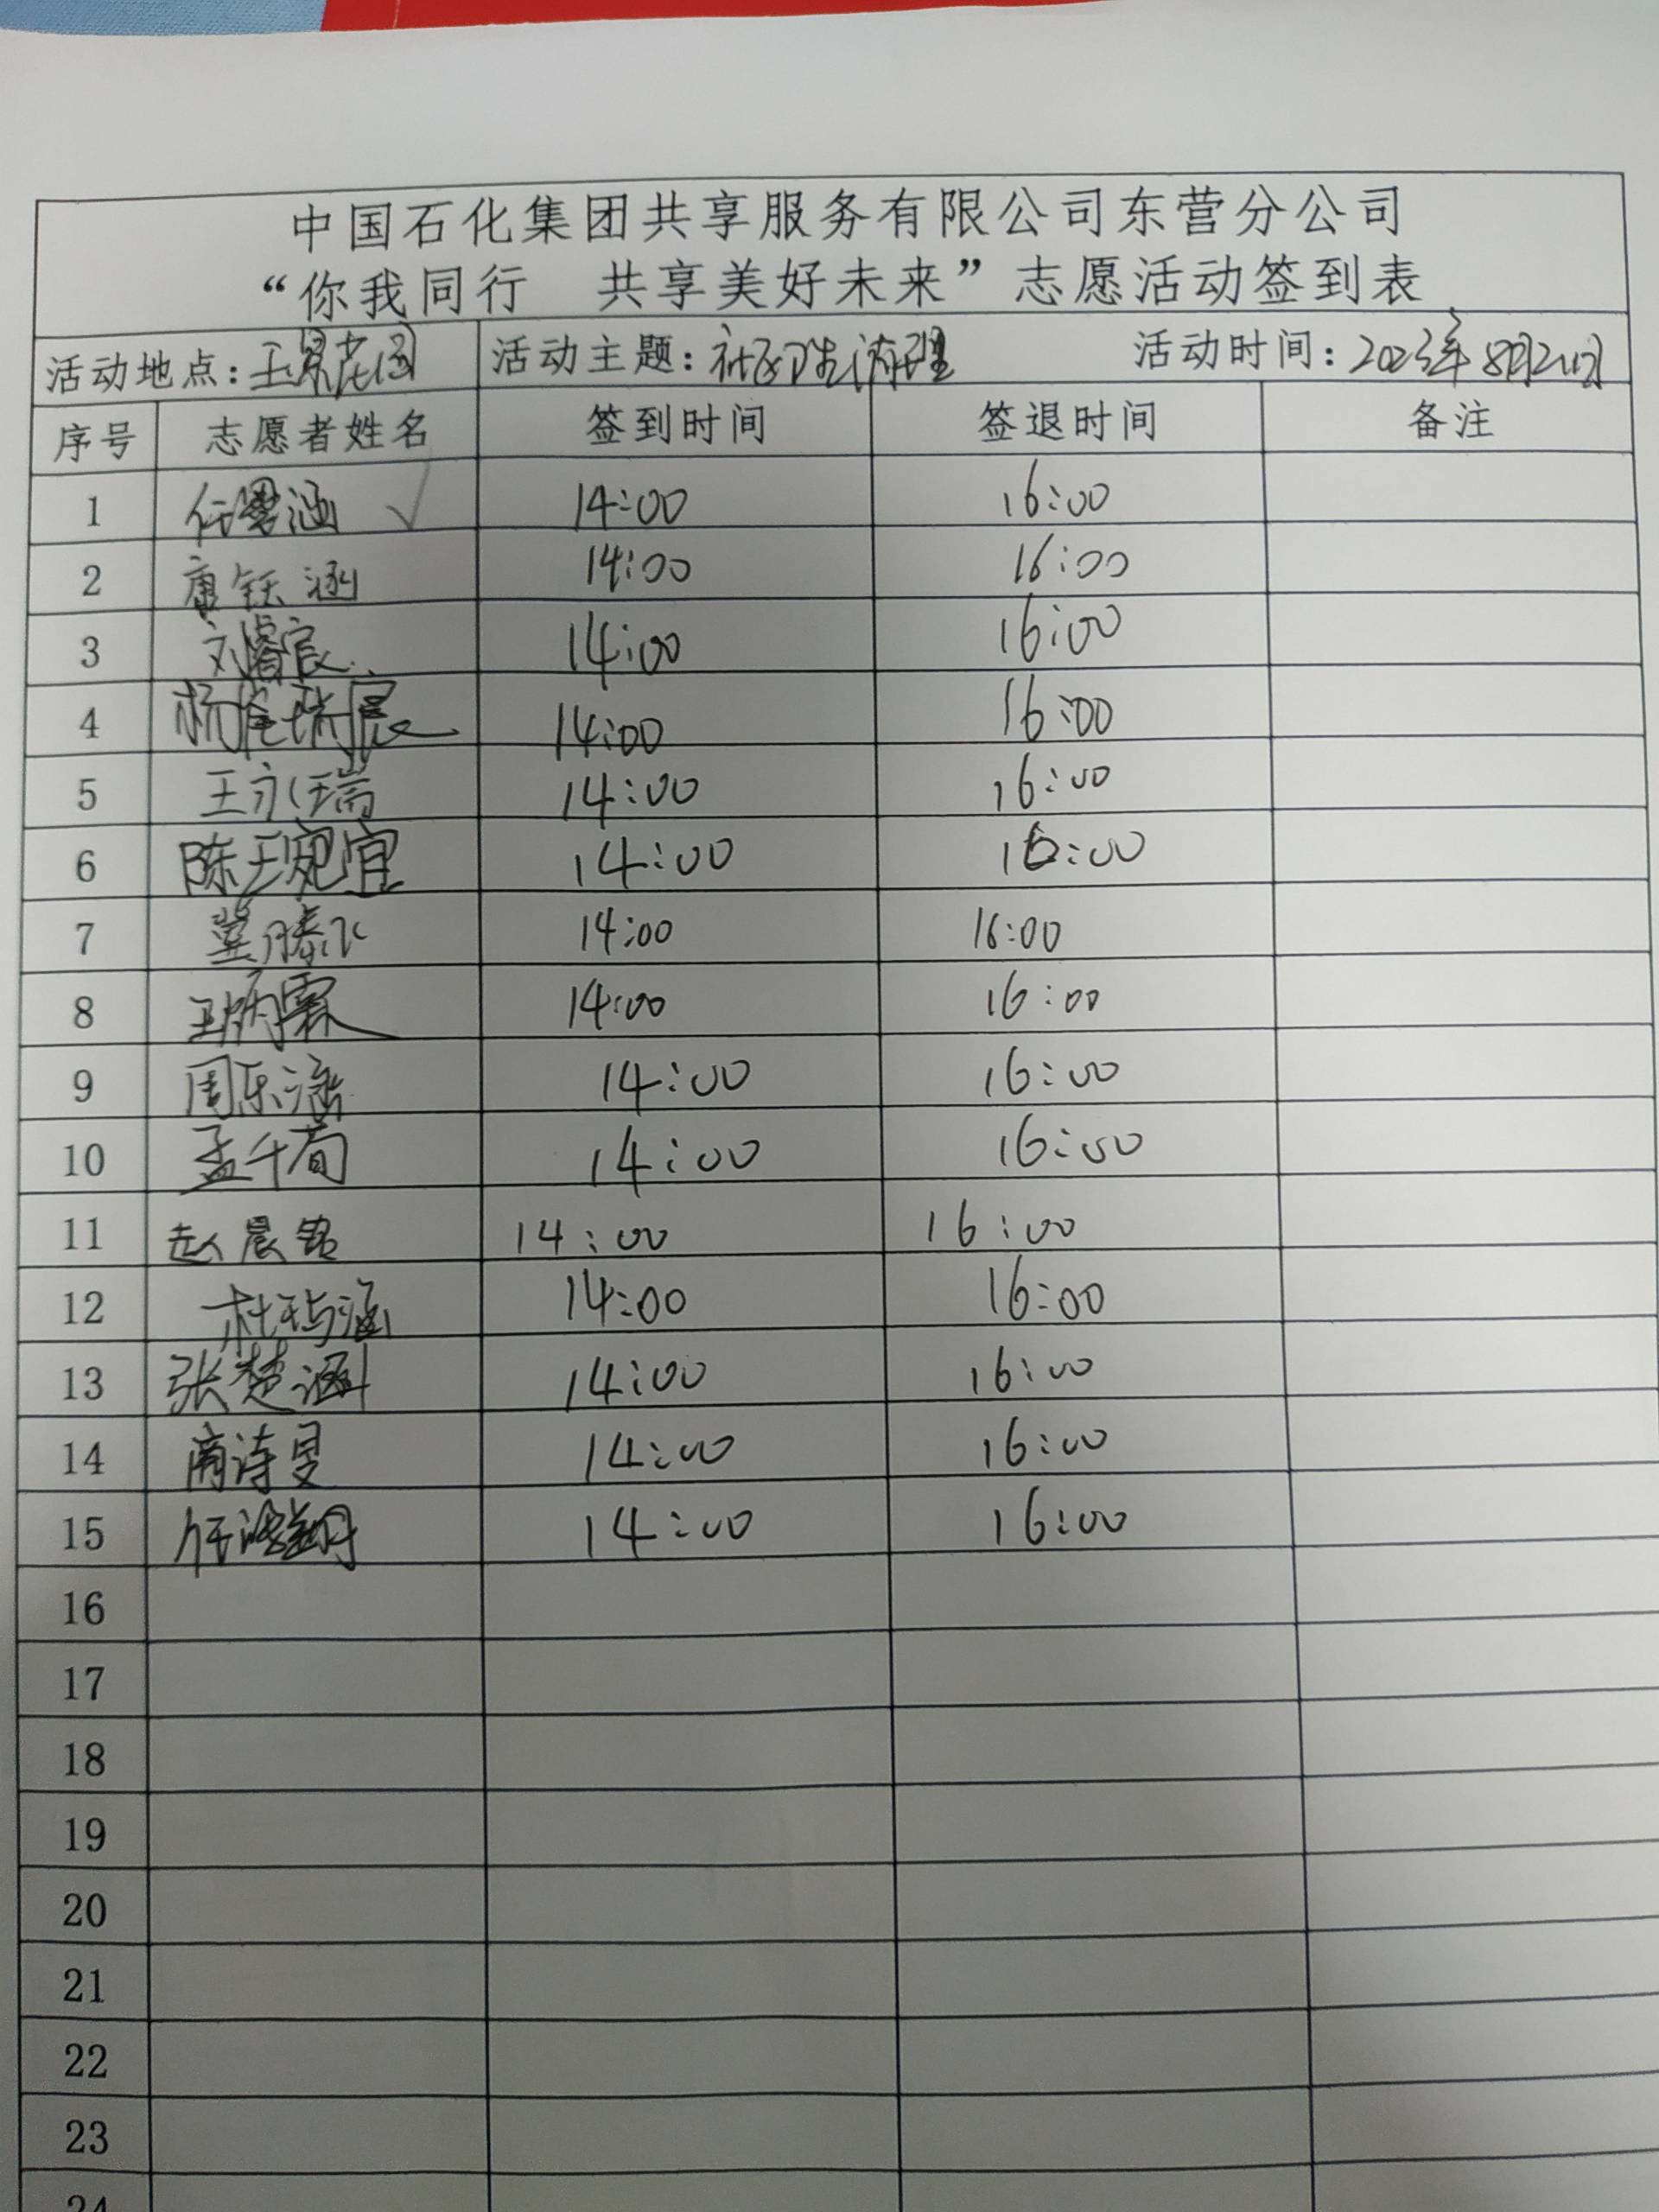 中国石化集团共享服务有限公司东营分公司
“你我同行 共享美好未来”志愿活动签到表
活动地点：玉景花园 活动主题：社区卫生清理 活动时间：2023年8月21日
序号 志愿者姓名 签到时间 签退时间 备注
1 任雯涵 √ 14:00 16:00
2 唐钰涵 14:00 16:00
3 刘睿宸 14:00 16:00
4 14:00 16:00
5 王永瑞 14:00 16:00
6 陈王宛宜 14:00 16:00
7 冀滕 14:00 16:00
8 王炳霖 14:00 16:00
9 周乐涵 14:00 16:00
10 孟千荀 14:00 16:00
11 赵晨铭 14:00 16:00
12 杜玙涵 14:00 16:00
13 张楚涵 14:00 16:00
14 商诗旻 14:00 16:00
15 任 14:00 16:00
16
17
18
19
20
21
22
23
24